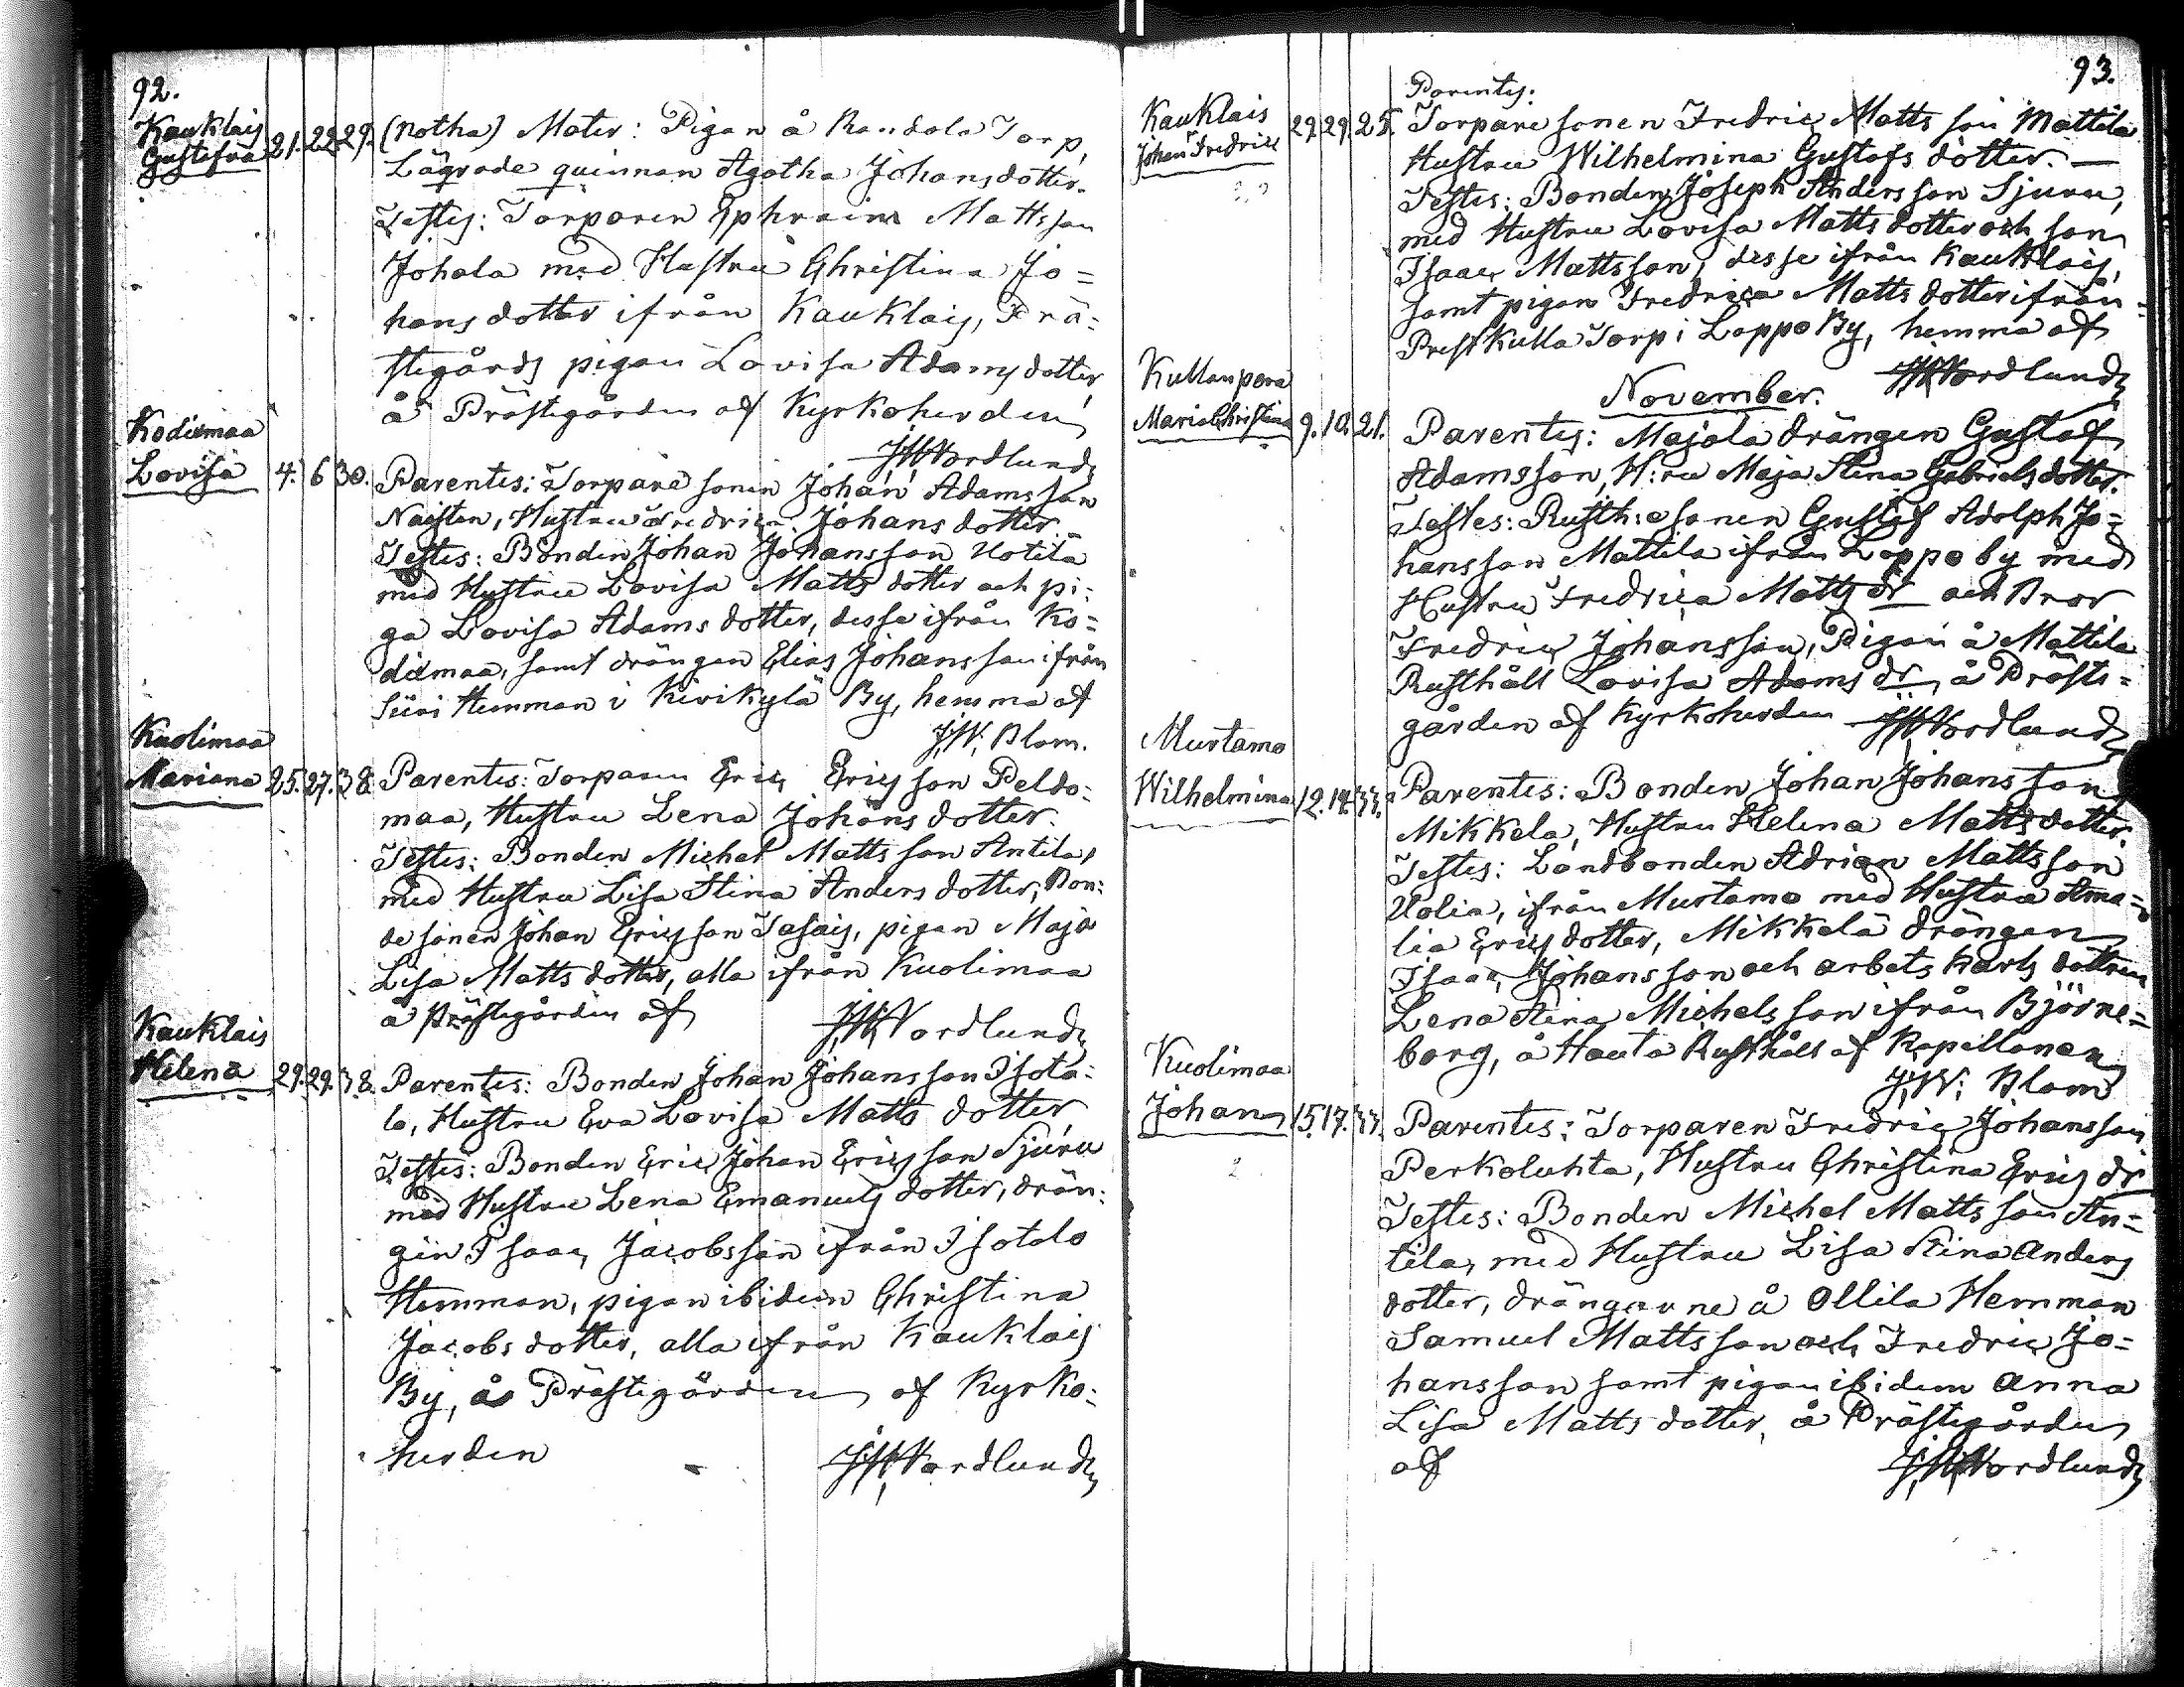 92.
Kauklais
Gustafva 21. 22. 29. (notha) Mater: Pigan å Randala Torp,
Lägrade quinnan Agatha Johansdotter.
Testes: Torparen Ephraim Mattsson
Johala med Hustru Christina Jo=
hansdotter ifrån Kauklais, Prä=
stegårds pigan Lovisa Adamsdotter
å Prästegården af Kyrkoherden
JWNordlund
Kodixmaa
Lovisa 4. 6 30. Parentes: Torpare sonen Johan Adamsson
Naisten, Hustru Fredrica Johans dotter
Testes: Bonden Johan Johansson Uotila
med Hustru Lovisa Matts dotter och pi=
ga Lovisa Adams dotter, desse ifrån Ko=
dixmaa, samt drängen Elias Johansson ifrån
Hemman i Kivikylä By, hemma af
J.W. Blom.
Kuolimaa
Mariana 25. 27. 38. Parentes: Torparen Eric Ericsson Peldo=
maa, Hustru Lena Johans dotter.
Testes: Bonden Michel Mattsson Antila,
med Hustru Lisa Stina Anders dotter, Bon=
de sonen Johan Ericsson, pigan Maja
Lisa Matts dotter, alla ifrån Kuolimaa
å Prästegården af JWNordlund
Kauklais
Helena 29. 29. 38. Parentes: Bonden Johan Johansson Isota=
lo, Hustru Eva Lovisa Matts dotter
Testes: Bonden Eric Johan Ericsson Sjuru
med Hustru Lena Emanuels dotter, drän=
gen Isaac Jacobsson ifrån Isotalo
Hemman, pigan ibidem Christina
Jacobs dotter, alla ifrån Kauklais
By, å Prästegården af Kyrko=
herden JWNordlund
93.
Parentes:
Kauklais
Johan Fredric 29. 29. 25. Torpare sonen Fredric Mattsson Mattila
Hustru Wilhelmina Gustafs dotter. —
Testes: Bonden Joseph Andersson Sjuru,
med Hustru Lovisa Matts dotter och son
Isaac Mattsson, desse ifrån Kauklais,
samt pigan Fredrica Matts dotter ifrån
Prestkulla Torp i Loppo By, hemma af
JWNordlund
November.
Kullanpera
Maria Christina 9. 10. 21. Parentes: Majala drängen Gustaf
Adamsson, H:ru Maja Stina Gabriels dotter.
Testes: Rusth: sonen Gustaf Adolph Jo=
hansson Mattila ifrån Loppo by med
Hustru Fredrica Matts dr och Bror
Fredric Johansson, Pigan å Mattila
Rusthåll Lovisa Adams dr, å Präste=
gården af Kyrkoherden JWNordlund
Murtamo
Wilhelmina 12. 14. 33. Parentes: Bonden Johan Johansson
Mikkela, Hustru Helena Matts dotter.
Testes: Landbonden Adrian Mattsson
Uolia, ifrån Murtamo med Hustru Ama=
lia Erics dotter, Mikkelä drängen
Isaac Johansson och arbets karls dottren
Lena Stina Michelsson ifrån Björne=
borg, å Hauta Rusthåll af Kapellanen
J.W. Blom
Kuolimaa
Johan 15. 17. 33. Parentes: Torparen Fredric Johansson
Perkoluhta, Hustru Christina Erics dr
Testes: Bonden Michel Mattsson An=
tila, med Hustru Lisa Stina Anders
dotter, drängarne å Ollila Hemman
Samuel Mattsson och Fredric Jo=
hansson samt pigan ibidem Anna
Lisa Matts dotter, å Prästegården
af JWNordlund